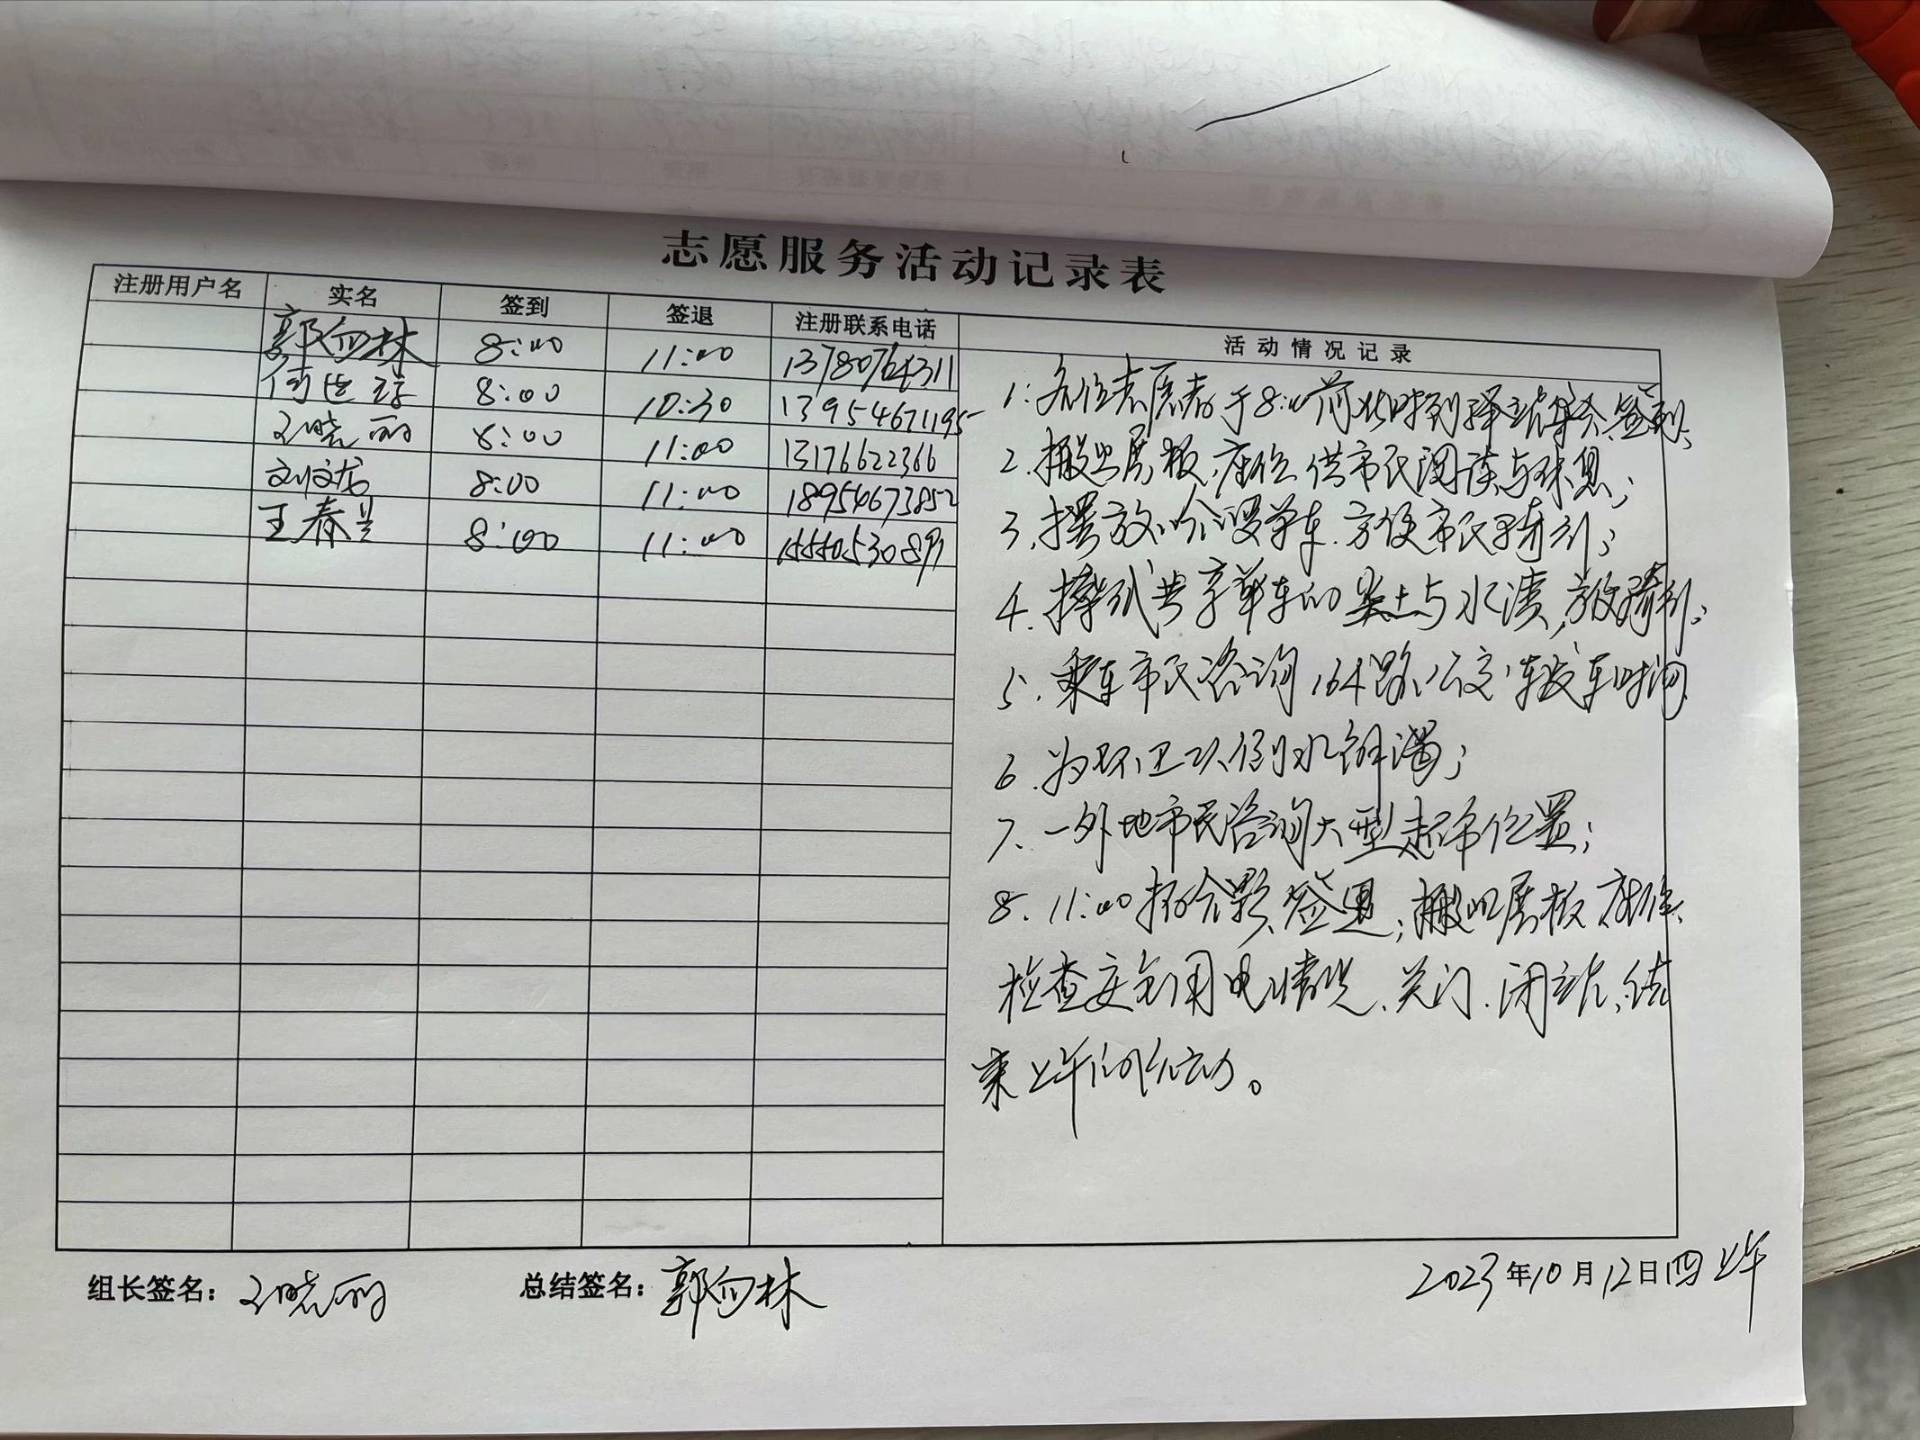 志愿服务活动记录表
注册用户名 实名 签到 签退 注册联系电话 活动情况记录
郭向林 8:00 11:00 13780764311
8:00 10:30 13954671195
晓丽 8:00 11:00 13176622366
刘文龙 8:00 11:00 18954673852
王春兰 8:00 11:00
1. 各位志愿者于8:00前准时到驿站集合、签到;
2. 搬出展板、座位供市民阅读与休息;
3. 摆放哈啰单车,方便市民骑行;
4. 擦拭共享单车的尘土与水渍,方便骑行;
5. 乘车市民咨询164路公交车发车时间
6. 为环卫工人倒水解渴;
7. 一外地市民咨询大型超市位置;
8. 11:00拍合影、签退;搬回展板、座位、
检查安全用电情况、关门、闭站,结
束上午的活动。
组长签名: 晓丽 总结签名: 郭向林 2023年10月12日四上午